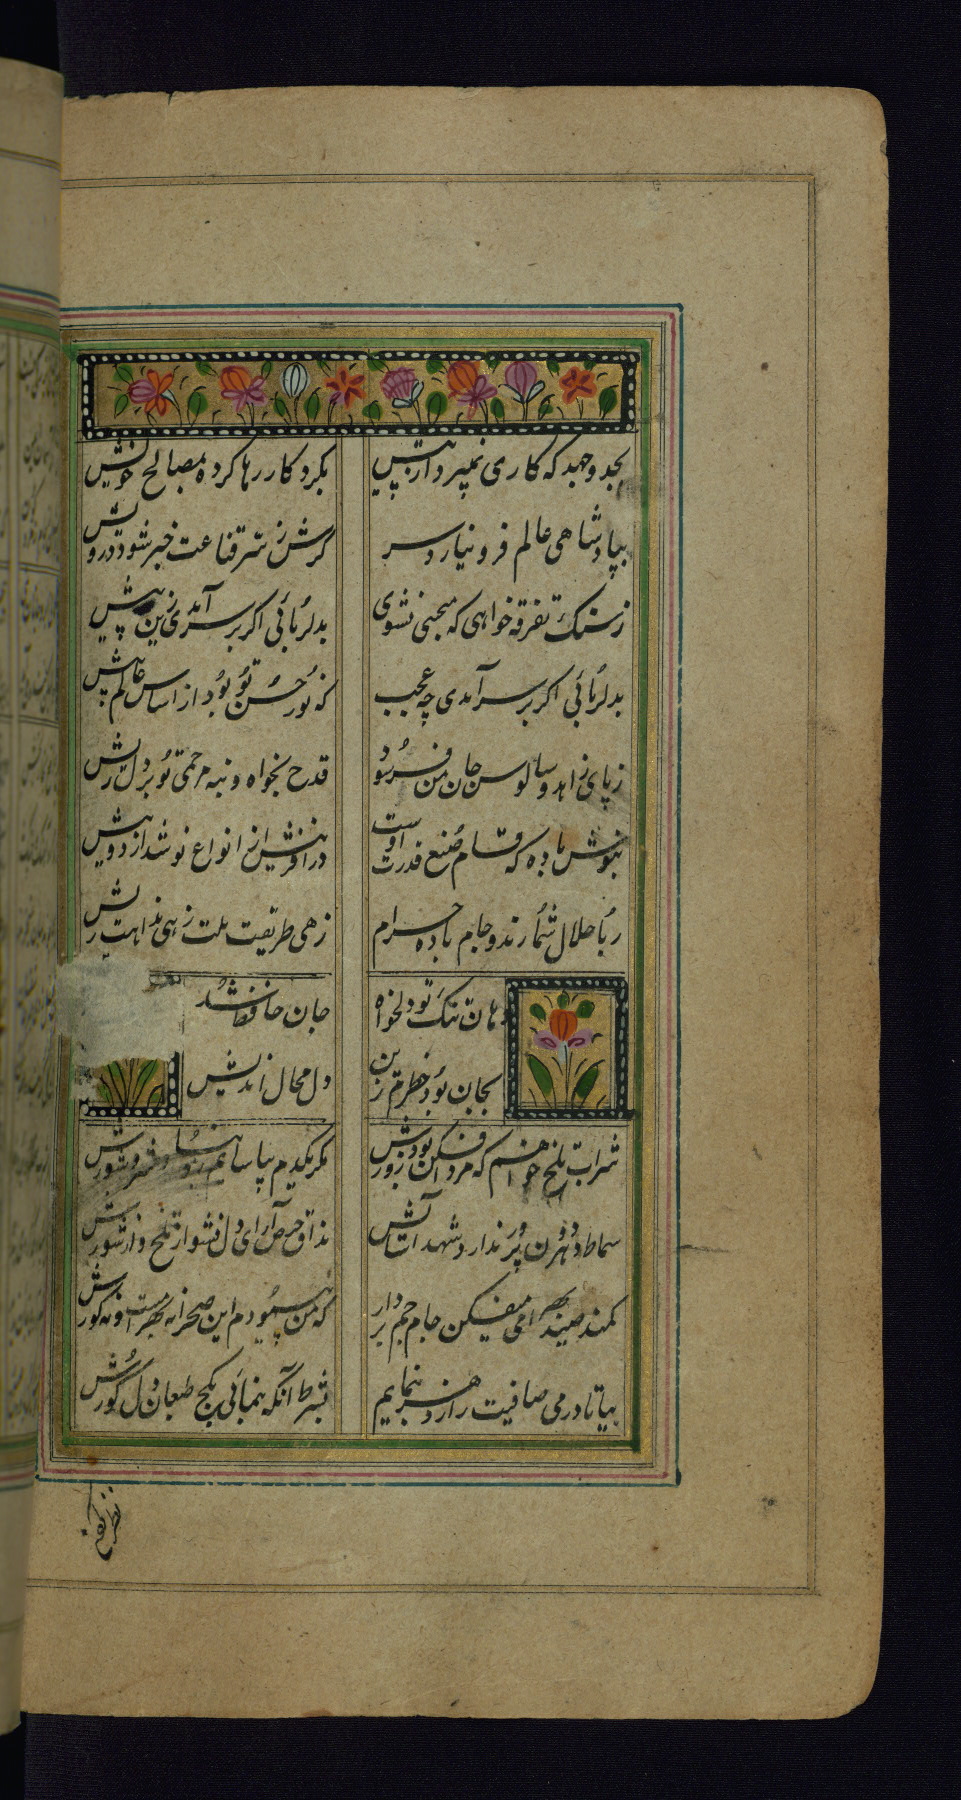 بجد و جهد که کاری نمیرود از پیش
بکردکار رها کرده مصالح خویش
بپادشاهی عالم فرو نیارد سر
کرش ز سر قناعت خبر شود درویش
ز سنک تفرقه خواهی که منحنی نشوی
بدلربائی اکر بر سر آمدی زین پیش
بدلربائی اکر بر سر آمدی چه عجب
که نور حسن تو بود از اساس عالم پیش
ز پای زاهد و سالوس جان من فرسود
قدح بخواه و بنه مرحمتی تو بر دل ریش
بنوش باده که قسام صنع قدرت اوست
در آفرینش از انواع نوشد از دو نیش
ربا حلال شمارند و جام باده حرام
زهی طریقت ملت زهی
دهان تنک تو دلخواه
جان حافظ شد
بجان بود خطرم زین
دل محال اندیش
شراب تلخ میخواهم که مرد افکن بود زورش
مکر یکدم بیاسایم ز دنیا و شر و شورش
سماط دهر دون پرور ندارد شهد آسایش
مذاق حرص آز ای دل بشو از تلخ و از شورش
کمند صید بهرامی بیفکن جام جم بردار
که من پیمودم این صحرا نه بهرامست و نه کورش
بیا تا در می صافیت راز دهر بنمایم
بشرط آنکه ننمائی بکج طبعان دل کورش
نظر کردن